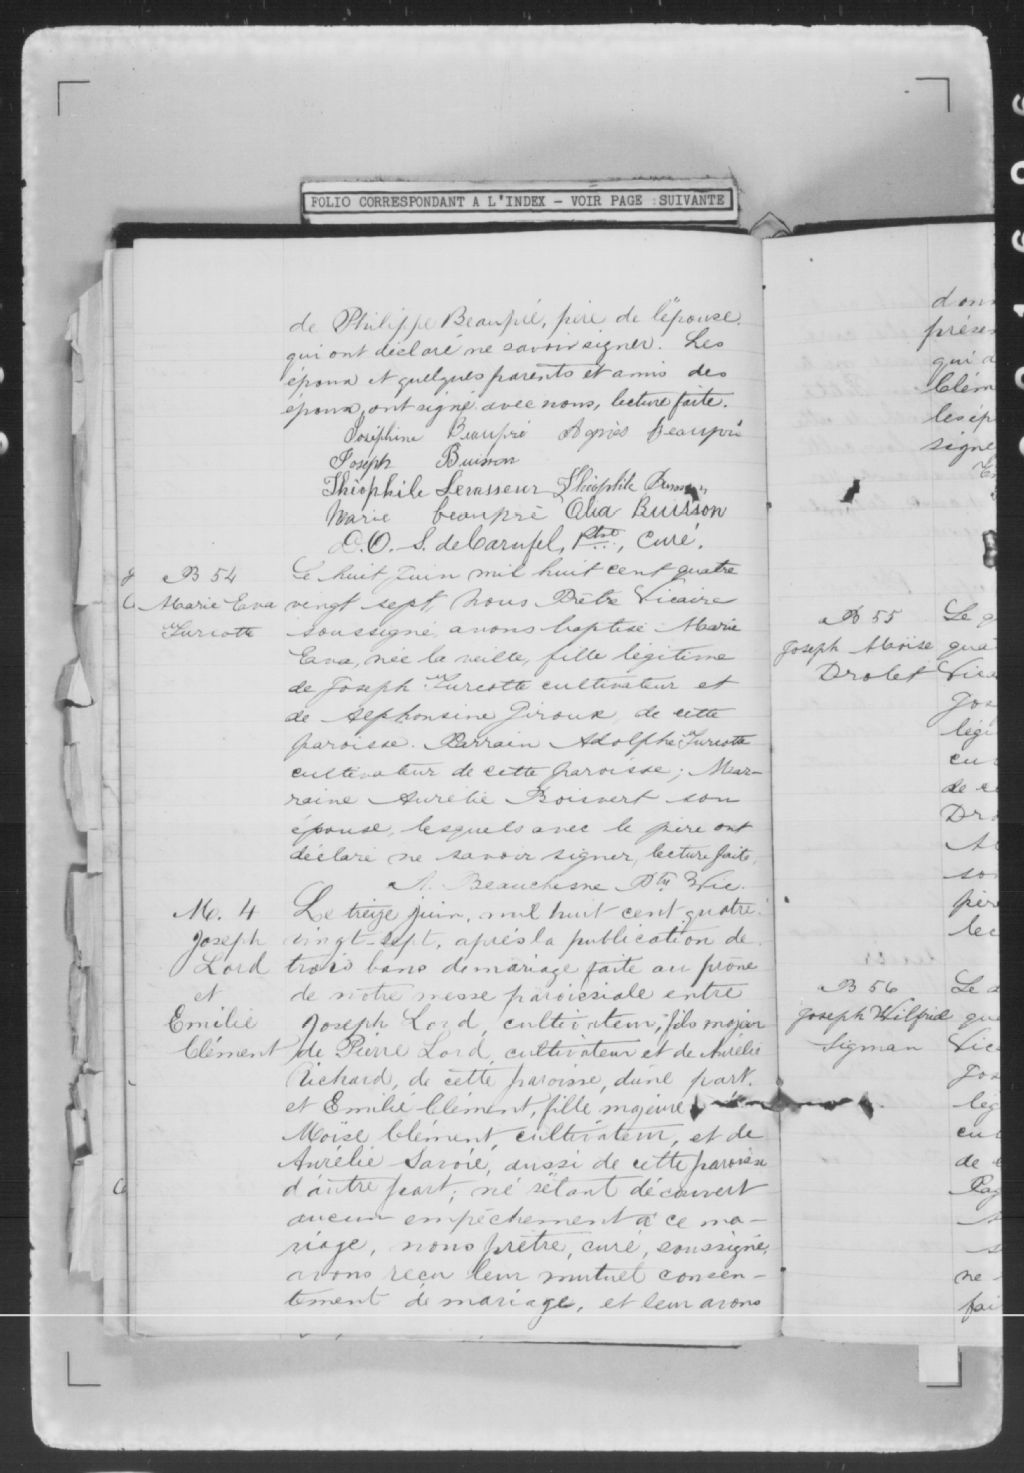 FOLIO CORRESPONDANT A L'INDEX - VOIR PAGE SUIVANTE
de Philippe Beaupré, père de l'épouse
qui ont déclaré ne savoir signer. Les
époux et quelques parents et amis des
époux, ont signé avec nous, lecture faite.
Joséphine Beaupré Agnès Beaupré
Joseph Buisson
Théophile Levasseur Théophile
Marie beaupré Olia Buisson
D. O. S. de Carufel, Ptre, Curé.
B 54
Marie Eva
Turcotte
Le huit Juin mil huit cent quatre
vingt sept, Nous Prêtre Vicaire
soussigné, avons baptisé Marie
Eva, née la veille, fille légitime
de Joseph Turcotte cultivateur et
de Alphonsine Giroux de cette
paroisse. Parrain Adolphe Turcotte
cultivateur de cette paroisse; Mar-
raine Aurélie Boisvert son
épouse, lesquels avec le père ont
déclaré ne savoir signer, lecture faite,
A. Beauchesne Ptre Vic.
M. 4
Joseph
Lord
et
Emilie
Clément
Le treize juin, mil huit cent quatre-
vingt-sept, après la publication de
trois bans de mariage faite au prône
de notre messe paroissiale entre
Joseph Lord, cultivateur, fils majeur
de Pierre Lord, cultivateur et de Aurélie
Richard, de cette paroisse, d'une part.
et Emilie Clément, fille majeure
Moïse Clément, cultivateur, et de
Aurélie Savoie, aussi de cette paroisse
d'autre part; ne s'étant découvert
aucun empêchement à ce ma-
riage, nous prêtre, curé, soussigné,
avons reçu leur mutuel consen-
tement de mariage, et leur avons
donn
présen
qui
Clém
les ép
signe
B 55
Joseph Moïse
Drolet
Le q
qua
Vica
Jos
légi
cu
de ce
Dro
so
père
lec
B 56
Joseph Wilfrid
Sigman
Le
qu
Vic
Jos
lég
cu
de
ne
fai